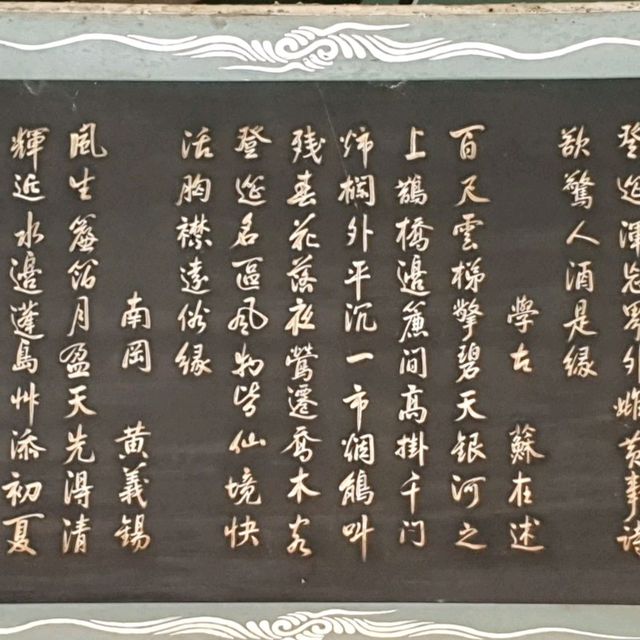 登遊渾 界外 事詩
欲驚人酒是緣
學古 蘇在述
百尺雲梯擎碧天銀河之
上鵲橋邊簾間高掛千門
欄外平沉一市烟鵑叫
残春花落夜鶯遷喬木客
登遊名區風物皆仙境快
活胸襟遠俗緣
南岡 黃義錫
風生簾箔月盈天先得清
輝近水邊蓬島艸添初夏